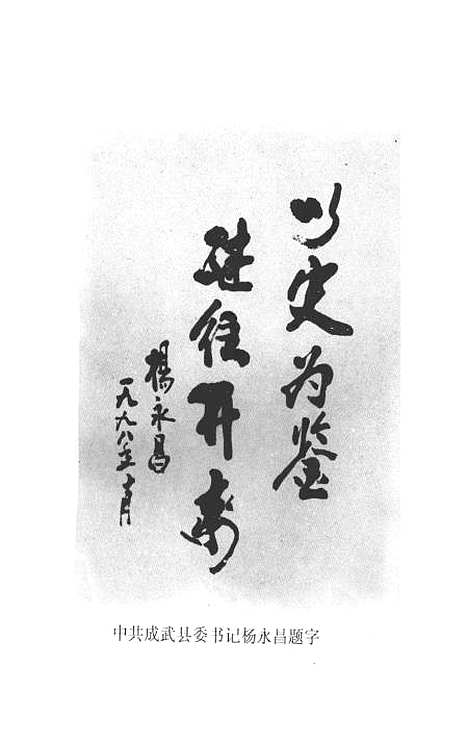 以史为鉴
继往开来
楊永昌
一九九八年十月
中共成武县委书记杨永昌题字